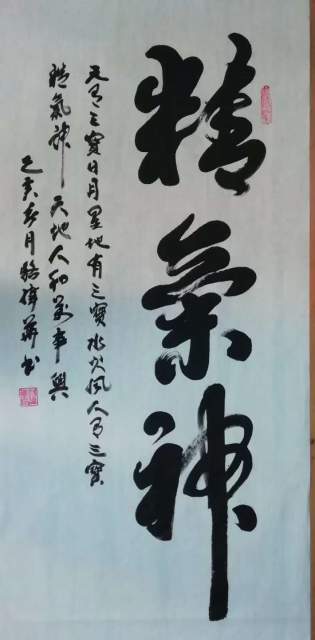 精氣神
天有三寶日月星地有三寶水火風人有三寶
精氣神天地人和萬事興
己亥春月駱偉華书